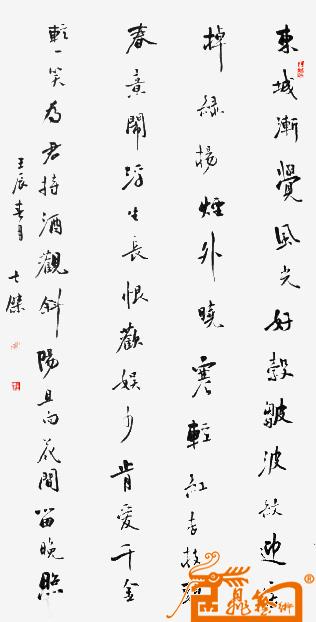 東城漸覺風光好縠皺波紋迎客
掉綠楊煙外曉寒輕紅杏枝頭
春意鬧浮生長恨歡娛少肯愛千金
輕一笑為君持酒觀斜陽且向花間留晚照
壬辰春月